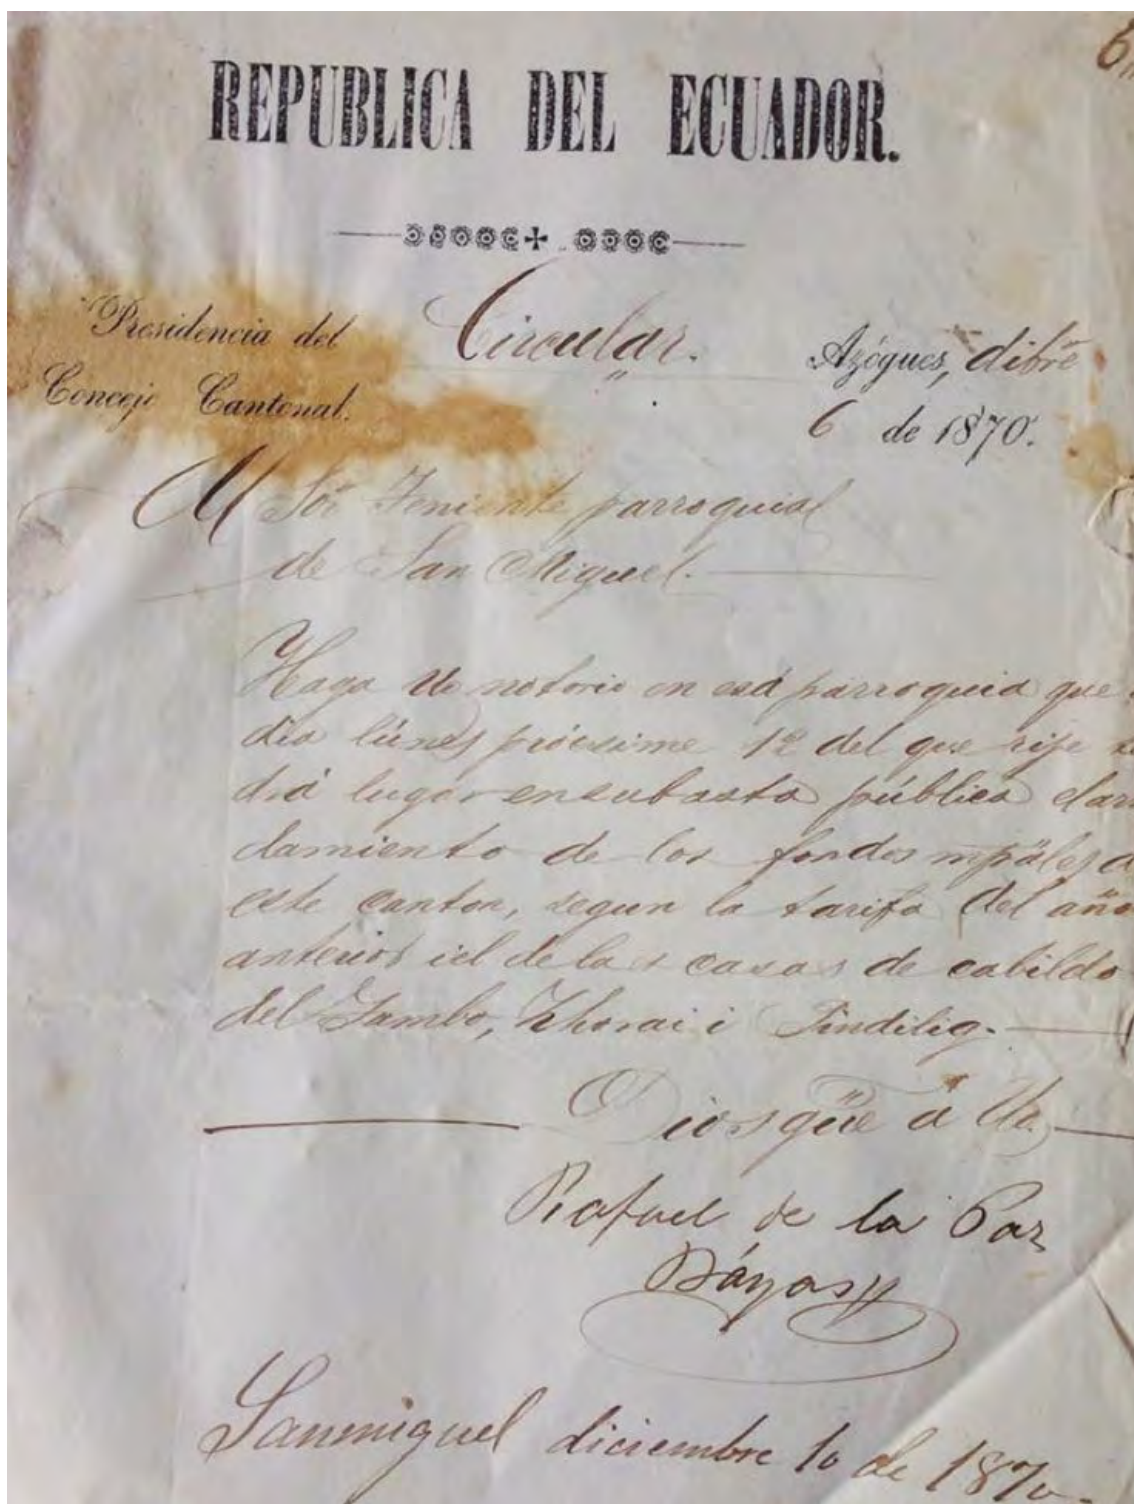 REPUBLICA DEL ECUADOR.
Presidencia del
Concejo Cantonal.
Circular.
Azógues, dibre
6 de 1870.
Al Sór Teniente parroquial
de San Miguel.
Haga Ud notorio en esa parroquia que
dia lúnes prócsimo 12 del que rije
drá lugar en subasta pública el arr
damiento de los fondos mpáles d
este canton, segun la tarifa del año
anterior i el de las casas de cabildo
del Tambo, Zhorai i Pindilig.
Dios güe á Ud.
Rafael de la Paz
Báyas
Sanmiguel diciembre 10 de 1870.